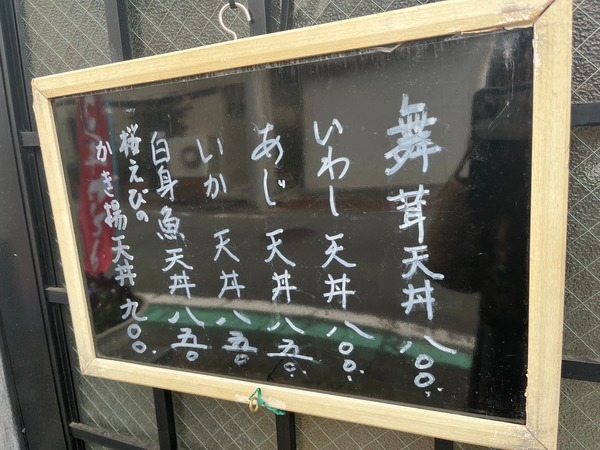 舞茸天丼八〇〇
いわし天丼八〇〇
あじ天丼八五〇
いか天丼八五〇
白身魚天丼八五〇
桜えびの
かき揚天丼九〇〇